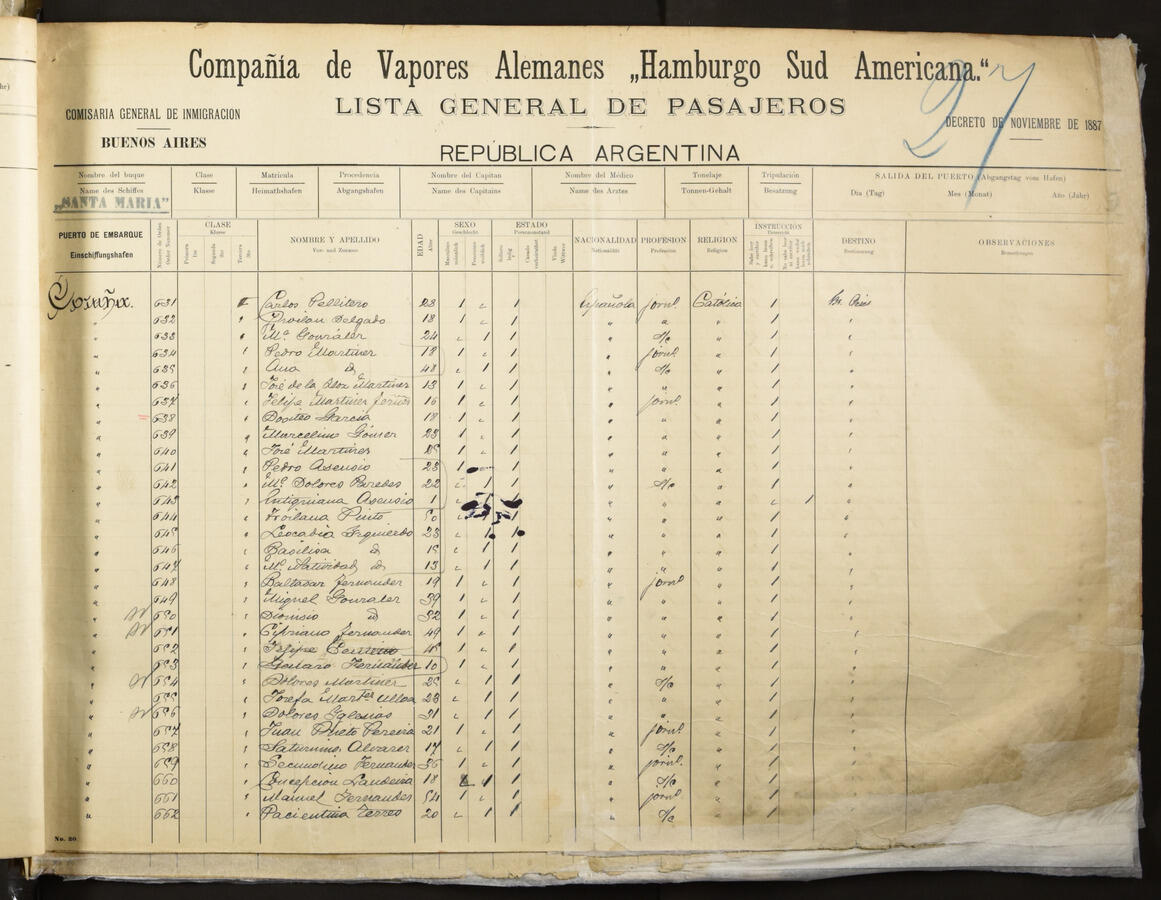 Compañía de Vapores Alemanes „Hamburgo Sud Americana.“
LISTA GENERAL DE PASAJEROS
COMISARIA GENERAL DE INMIGRACION
BUENOS AIRES
DECRETO DE NOVIEMBRE DE 1887
27
REPÚBLICA ARGENTINA
Nombre del buque Clase Matricula Procedencia Nombre del Capitan Nombre del Médico Tonelaje Tripulación SALIDA DEL PUERTO (Abgangstag vom Hafen)
Name des Schiffes Klasse Heimathshafen Abgangshafen Name des Capitains Name des Arztes Tonnen-Gehalt Besatzung Dia (Tag) Mes (Monat) Año (Jahr)
„SANTA MARIA“
PUERTO DE EMBARQUE CLASE NOMBRE Y APELLIDO EDAD SEXO ESTADO NACIONALIDAD PROFESION RELIGION INSTRUCCIÓN DESTINO OBSERVACIONES
Einschiffungshafen
Coruña 631 " Carlos Pellitero 28 1 " 1 Española jornl. Católica 1 Bs. Aires
" 632 " Froilan Delgado 18 1 " 1 " " " 1 "
" 633 " Mª Gonzalez 24 " 1 1 " s/c " 1 "
" 634 " Pedro Martinez 18 1 " 1 " jornl. " 1 "
" 635 " Ana id 48 " 1 1 " s/c " 1 "
" 636 " José de la Martinez 13 1 " 1 " " " 1 "
" 637 " Felipe Martinez 16 1 " 1 " jornl. " 1 "
" 638 " Dositeo Garcia 18 1 " 1 " " " 1 "
" 639 " Marcelino Gómez 23 1 " 1 " " " 1 "
" 640 " José Martinez 25 1 " 1 " " " 1 "
" 641 " Pedro Asensio 23 1 1 " " " 1 "
" 642 " Mª Dolores Paredes 22 " 1 1 " s/c " 1 "
" 643 " Asensio 1 " " " " " 1 "
" 644 " Froilana Pinto 50 " 1 1 " " " 1 "
" 645 " Leocadia Izquierdo 23 " 1 1 " " " 1 "
" 646 " Basilisa id 15 " 1 1 " " " 1 "
" 647 " Mª Natividad id 13 " 1 1 " " " 1 "
" 648 " Baltasar Fernandez 19 1 " 1 " jornl " 1 "
" 649 " Miguel Gonzalez 39 1 " 1 " " " 1 "
" 650 " Dionisio id 32 1 " 1 " " " 1 "
" 651 " Cipriano Fernandez 49 1 " 1 " " " 1 "
" 652 " Felipe 45 1 " 1 " " " 1 "
" 653 " Genaro Fernández 10 1 " 1 " " " 1 "
" 654 " Dolores Martinez 25 " 1 1 " s/c " 1 "
" 655 " Josefa Martez Ulloa 23 " 1 1 " " " 1 "
" 656 " Dolores Iglesias 31 " 1 1 " " " 1 "
" 657 " Juan Prieto Pereira 21 1 " 1 " jornl. " 1 "
" 658 " Saturnino Alvarez 17 " 1 1 " s/c " 1 "
" 659 " Secundino Fernandez 36 1 " 1 " jornl. " 1 "
" 660 " Concepcion Landeira 18 1 1 " s/c " 1 "
" 661 " Manuel Fernandez 54 1 " 1 " jornl " 1 "
" 662 " Pacientina Torres 20 " 1 1 " s/c " 1 "
No. 20